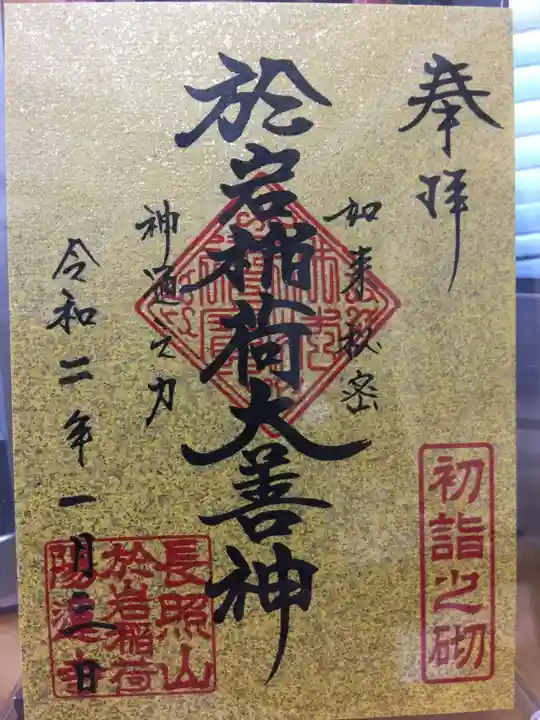 奉拝
初詣之砌
如来秘密
於岩稲荷大善神
神通之力
令和二年一月三日
長照山
於岩稲荷
陽運寺